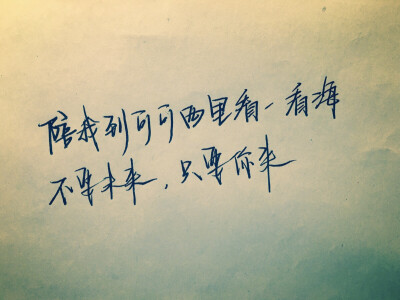 陪我到可可西里看一看海
不要未来，只要你来